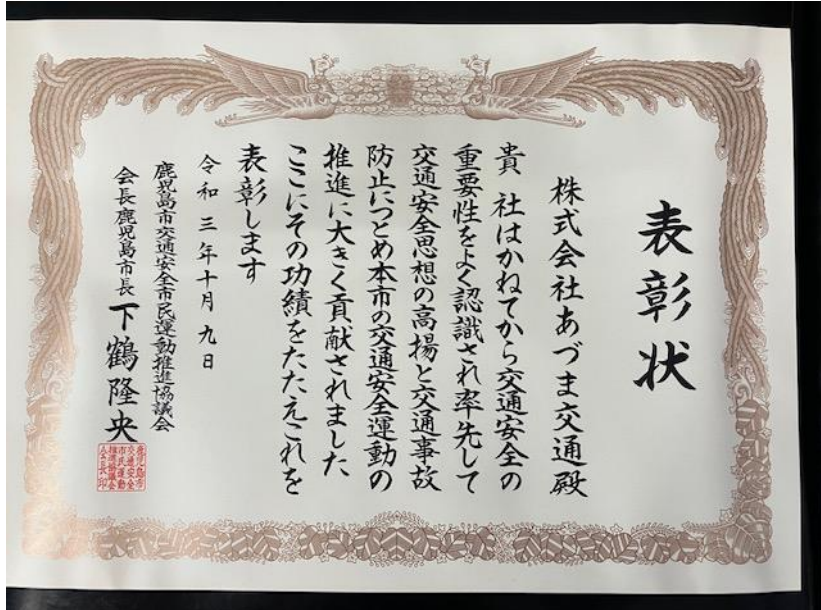 表彰状
株式会社あづま交通殿
貴 社はかねてから交通安全の
重要性をよく認識され率先して
交通安全思想の高揚と交通事故
防止につとめ本市の交通安全運動の
推進に大きく貢献されました
ここにその功績をたたえこれを
表彰します
令和三年十月九日
鹿児島市交通安全市民運動推進協議会
会長鹿児島市長 下鶴隆央
鹿児島市
交通安全
市民運動
推進協議会
会長印